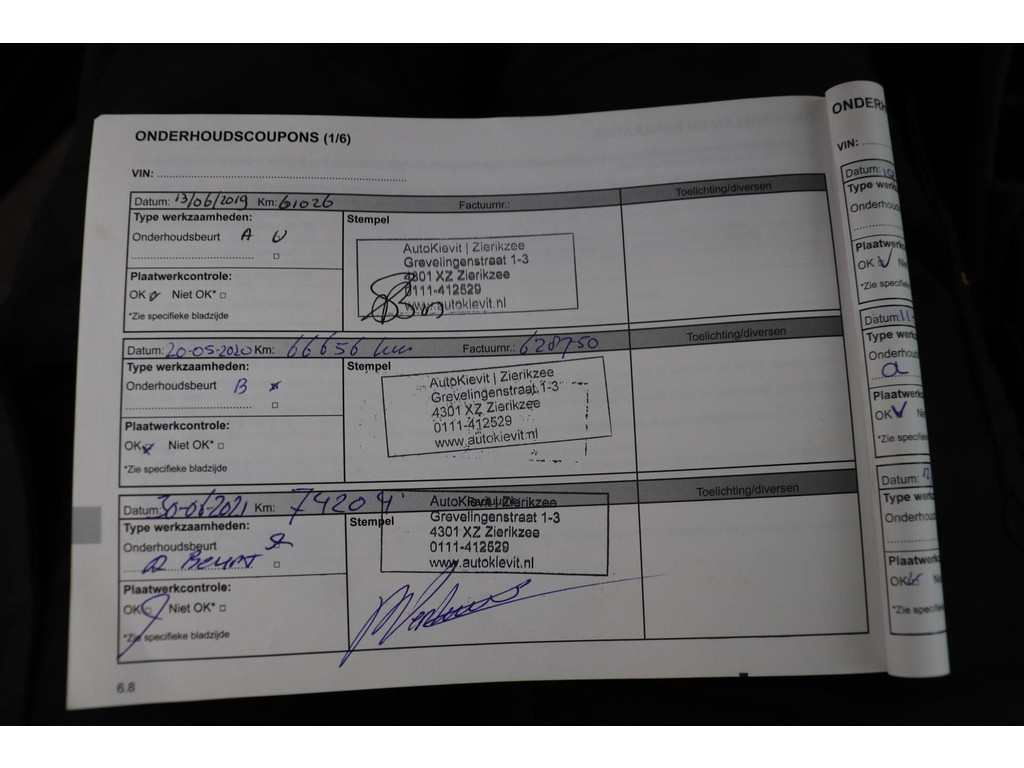 ONDERHOUDSCOUPONS (1/6)
VIN:
Datum: 13/06/2019 Km: 61026 Factuurnr.: Toelichting/diversen
Type werkzaamheden: Stempel
Onderhoudsbeurt A
AutoKievit | Zierikzee
Grevelingenstraat 1-3
4301 XZ Zierikzee
0111-412529
www.autokievit.nl
Plaatwerkcontrole:
OK Niet OK*
*Zie specifieke bladzijde
Datum: 20-05-2020 Km: 66656 km Factuurnr.: 628750 Toelichting/diversen
Type werkzaamheden: Stempel
Onderhoudsbeurt B
AutoKievit | Zierikzee
Grevelingenstraat 1-3
4301 XZ Zierikzee
0111-412529
www.autokievit.nl
Plaatwerkcontrole:
OK Niet OK*
*Zie specifieke bladzijde
Datum: 30-06-2021 Km: 74204 Toelichting/diversen
Type werkzaamheden: Stempel
Onderhoudsbeurt
a Beurt
AutoKievit | Zierikzee
Grevelingenstraat 1-3
4301 XZ Zierikzee
0111-412529
www.autokievit.nl
Plaatwerkcontrole:
OK Niet OK*
*Zie specifieke bladzijde
6.8
ONDERH
VIN:
Datum:
Type werk
Onderhouds
Plaatwerk
OK Nie
*Zie specifieke
Datum: 11-
Type werk
Onderho
a
Plaatwerk
OK Ni
*Zie specifie
Datum: 12
Type we
Onderhoud
Plaatwe
OK N
*Zie specifie